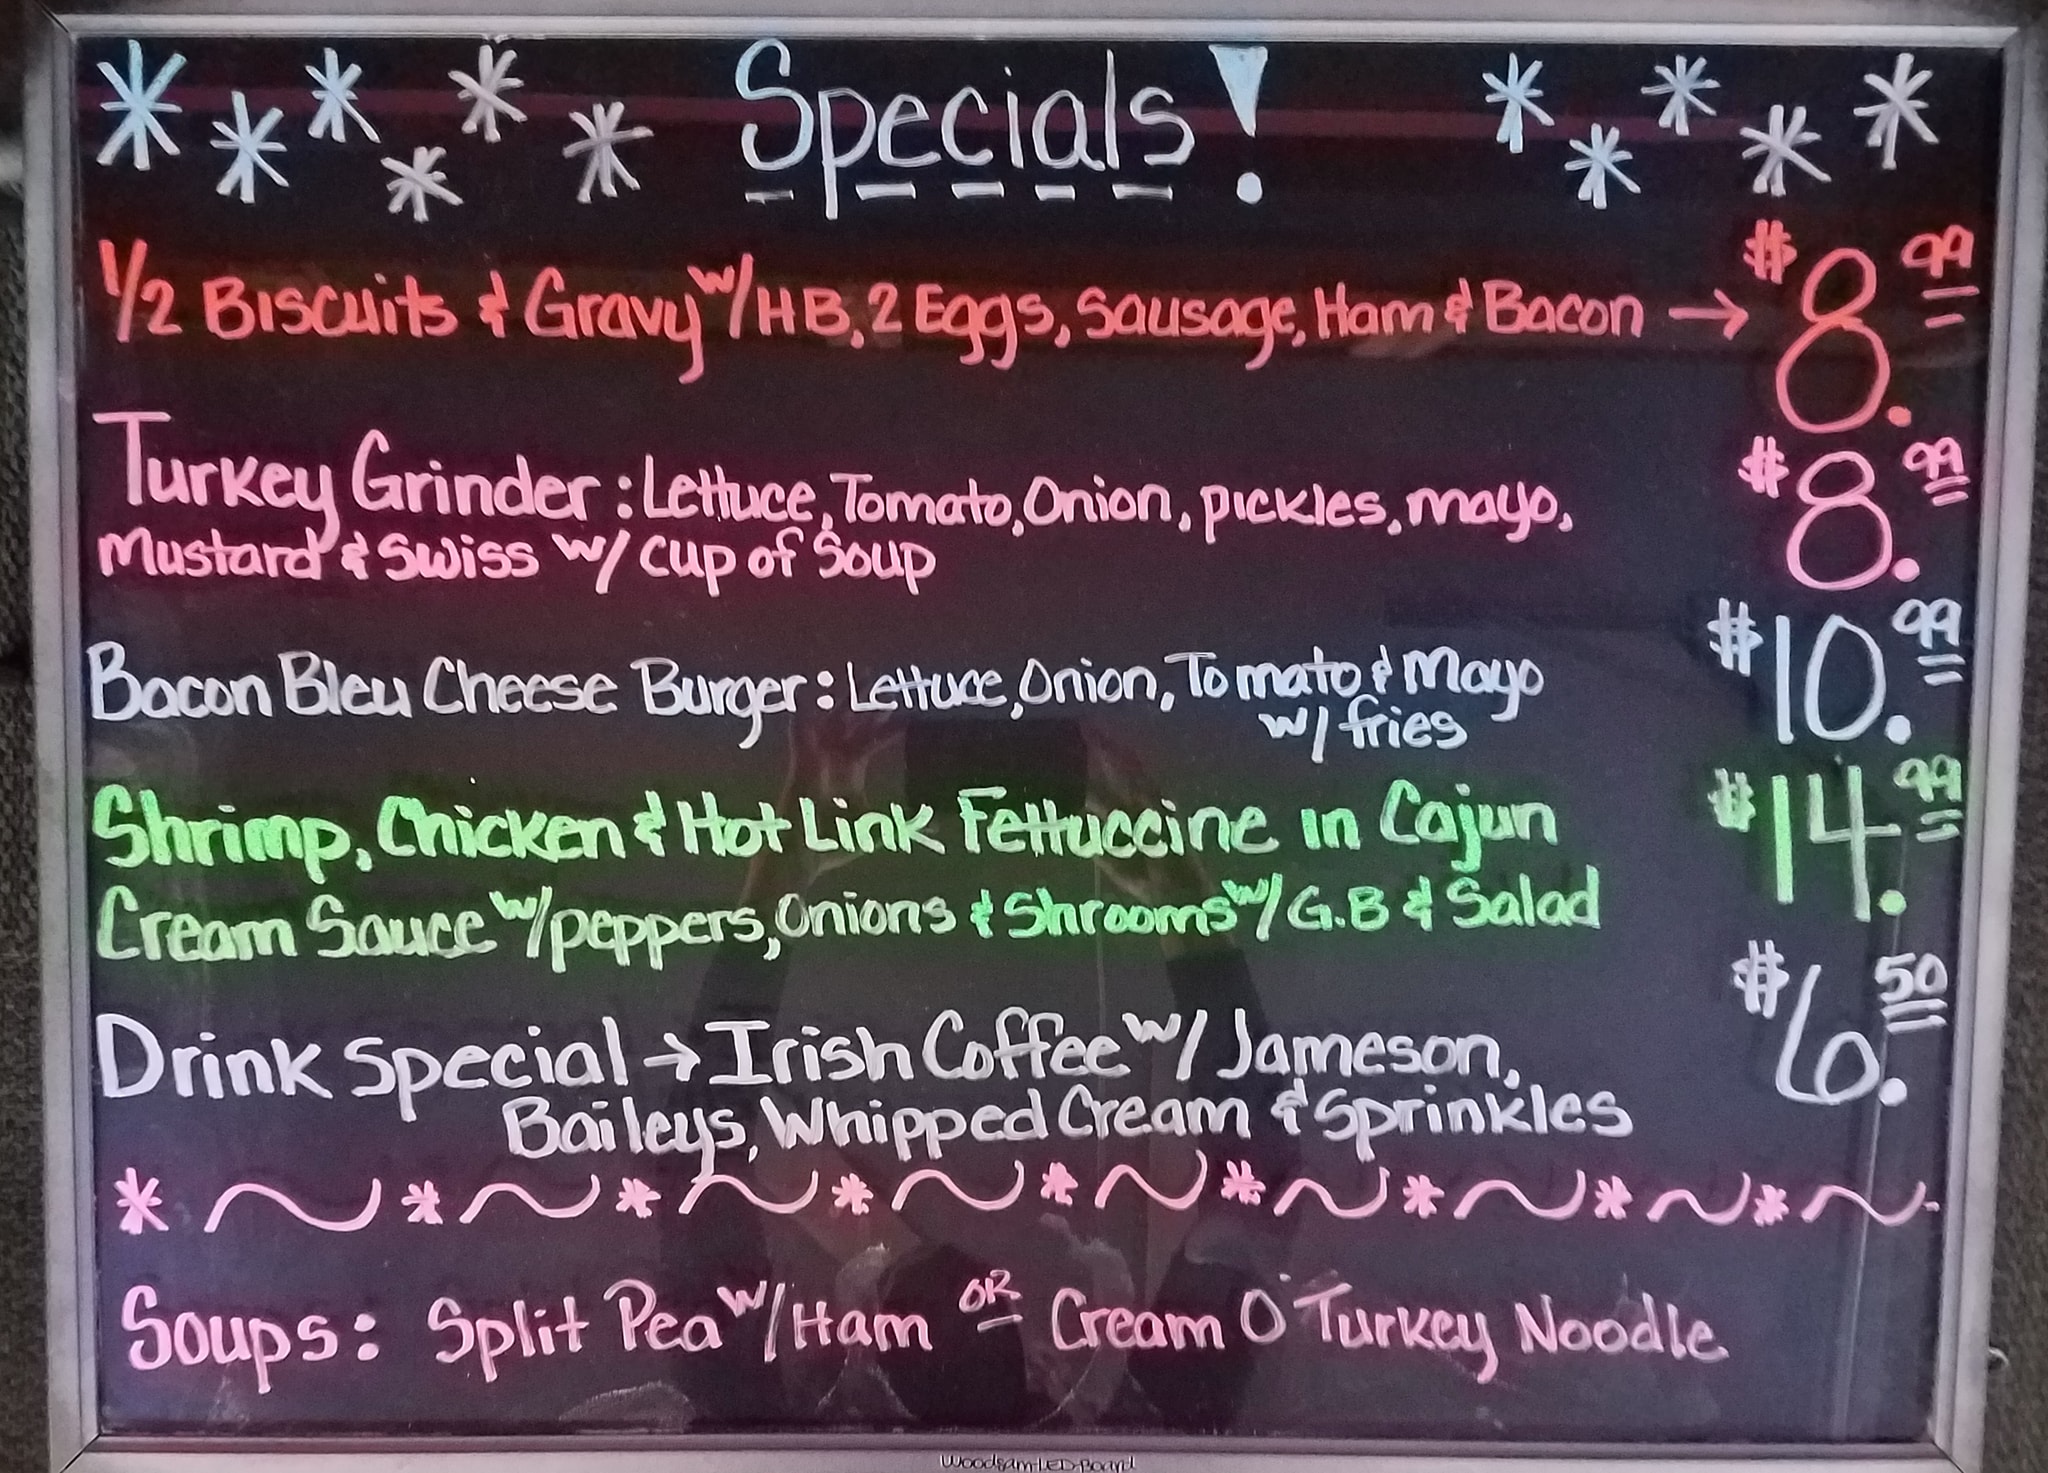 Specials!
1/2 Biscuits & Gravy w/ HB, 2 Eggs, Sausage, Ham & Bacon → $8.99
Turkey Grinder: Lettuce, Tomato, Onion, pickles, mayo, $8.99
Mustard & Swiss w/ cup of Soup
Bacon Bleu Cheese Burger: Lettuce, Onion, Tomato & Mayo $10.99
w/ fries
Shrimp, Chicken & Hot Link Fettuccine in Cajun $14.99
Cream Sauce w/ peppers, Onions & Shrooms w/ G.B & Salad
Drink Special → Irish Coffee w/ Jameson, $6.50
Baileys, Whipped Cream & Sprinkles
Soups: Split Pea w/ Ham OR Cream O' Turkey Noodle
Woodsam LED Board